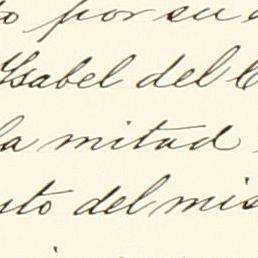 por su
Ysabel del
la mitad
to del mis